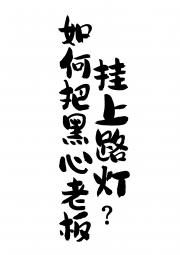 如何把黑心老板
挂上路灯?